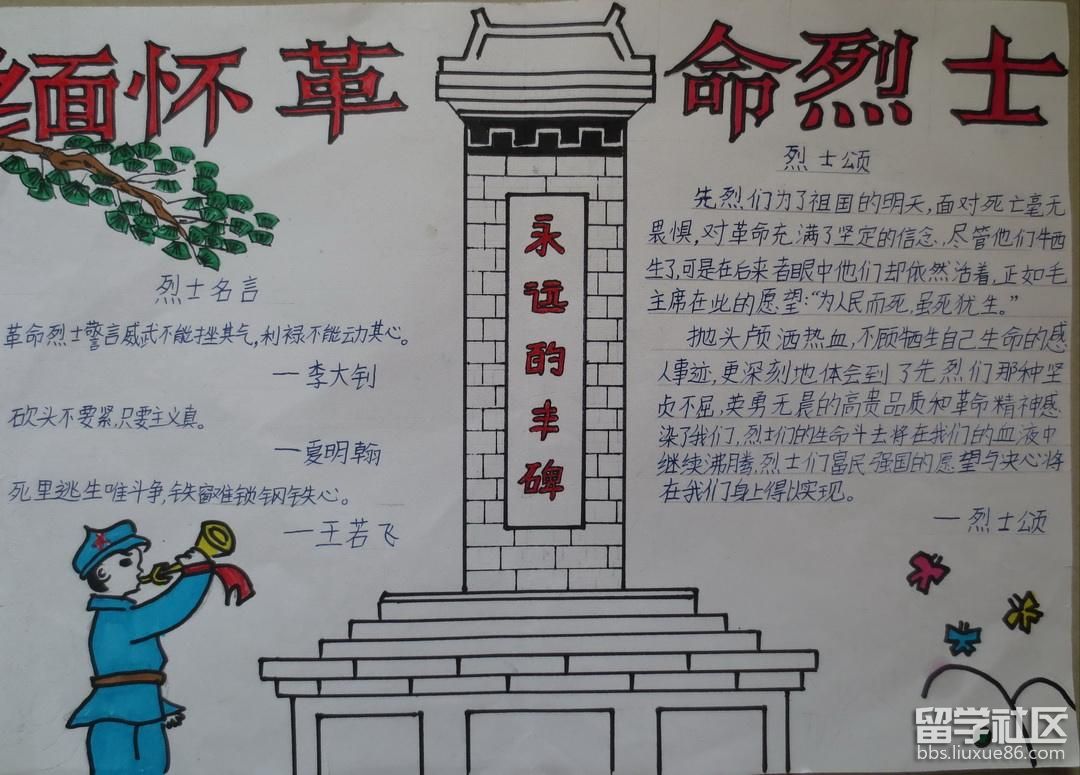 缅怀革命烈士
永远的丰碑
烈士名言
革命烈士警言威武不能挫其气，利禄不能动其心。
—李大钊
砍头不要紧，只要主义真。
—夏明翰
死里逃生唯斗争，铁窗难锁钢铁心。
—王若飞
烈士颂
先烈们为了祖国的明天，面对死亡毫无
畏惧，对革命充满了坚定的信念，尽管他们牺
生了，可是在后来者眼中他们却依然活着，正如毛
主席在此的愿望：“为人民而死，虽死犹生。”
抛头颅洒热血，不顾牺生自己生命的感
人事迹，更深刻地体会到了先烈们那种坚
贞不屈，英勇无晨的高贵品质和革命精神感
染了我们，烈士们的生命斗去将在我们的血液中
继续沸腾，烈士们富民强国的愿望与决心将
在我们身上得以实现。
—烈士颂
留学社区
bbs.liuxue86.com